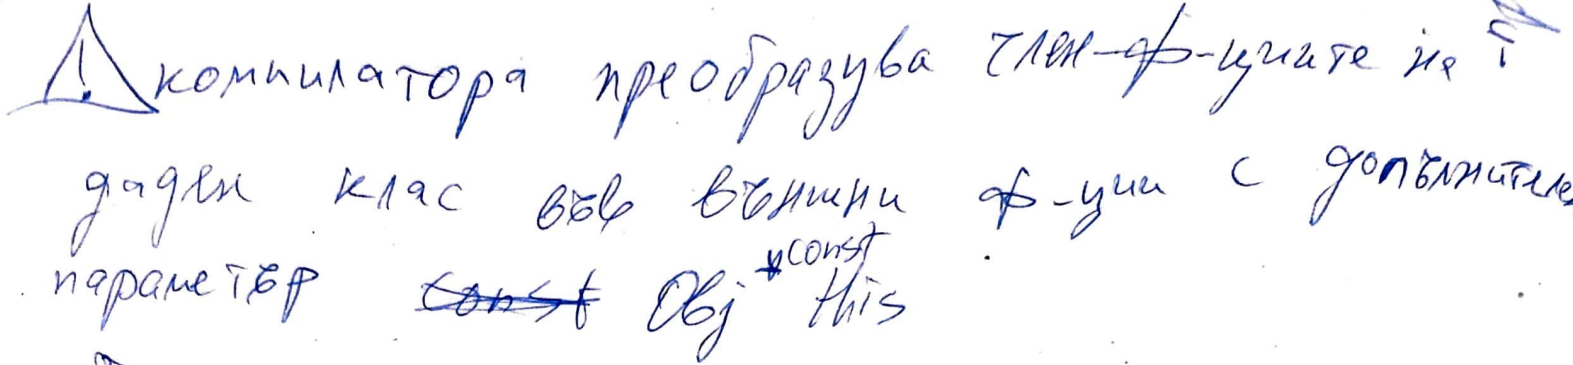 ! компилатора преобразува член-ф-циите на
даден клас във външни ф-ции с допълнителен
параметър const Obj *const this